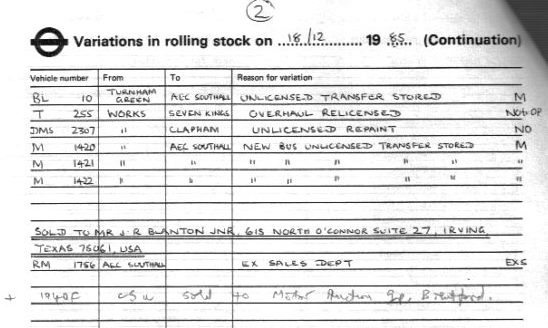 2
Variations in rolling stock on 18/12 1985 (Continuation)
Vehicle number From To Reason for variation
BL 10 TURNHAM GREEN AEC SOUTHALL UNLICENSED TRANSFER STORED M
T 255 WORKS SEVEN KINGS OVERHAUL RELICENSED NOT OP
DMS 2307 " CLAPHAM UNLICENSED REPAINT NO
M 1420 " AEC SOUTHALL NEW BUS UNLICENSED TRANSFER STORED M
M 1421 " " " " " " " "
M 1422 " " " " " " " "
SOLD TO MR J R BLANTON JNR, 615 NORTH O'CONNOR SUITE 27, IRVING,
TEXAS 75061, USA
RM 1756 AEC SOUTHALL EX SALES DEPT EXS
+ sold to Motor Auction Gp, Brentford.